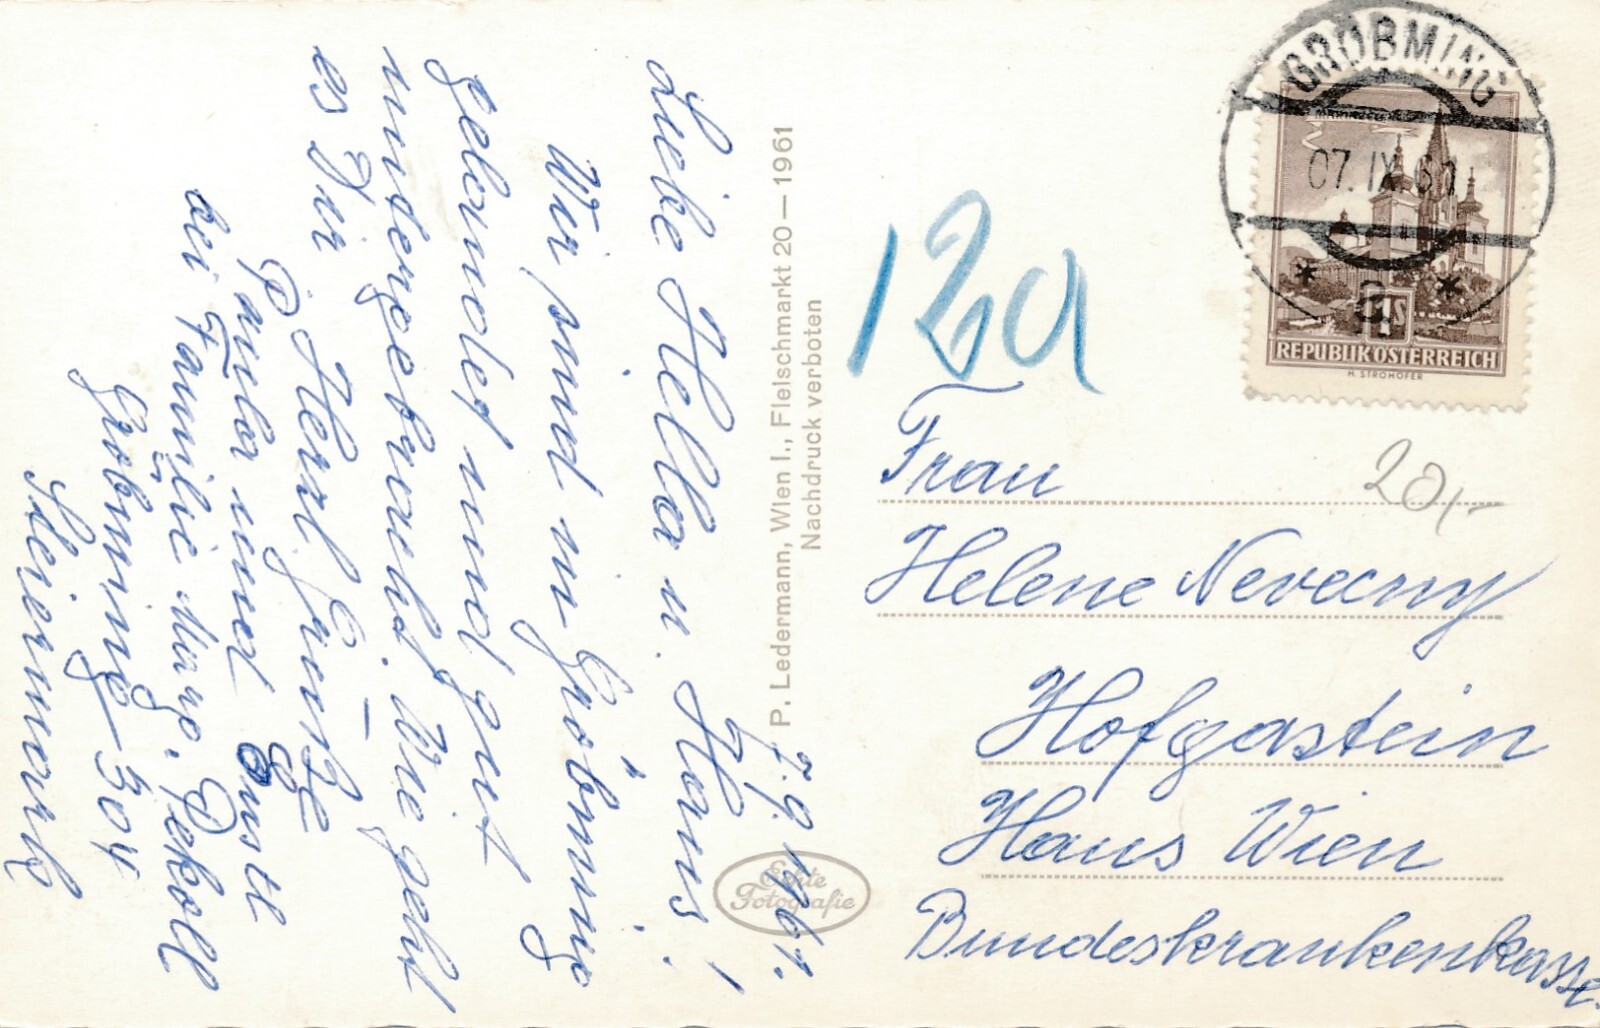 7.9.1961.
Liebe Hella u. Hans!
Wir sind in Gröbming
gelandet und gut
untergebracht. Wie geht
es Dir
Herzl. Grüße
Paula und Gustl
bei Familie Marg. Pekoll
Gröbming 304
Steiermark
P. Ledermann, Wien I., Fleischmarkt 20—1961
Nachdruck verboten
Echte
Fotografie
12a
GRÖBMING
MARIAZELL
07.IX.61
a
1S
REPUBLIK ÖSTERREICH
H. STROHOFER
20,-
Frau
Helene Nevecny
Hofgastein
Haus Wien
Bundeskrankenkasse